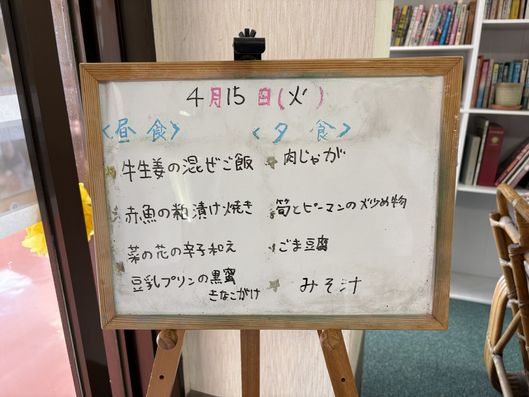 4月15日(火)
<昼食>
牛生姜の混ぜご飯
赤魚の粕漬け焼き
菜の花の辛子和え
豆乳プリンの黒蜜
きなこがけ
<夕食>
肉じゃが
筍とピーマンの炒め物
ごま豆腐
みそ汁